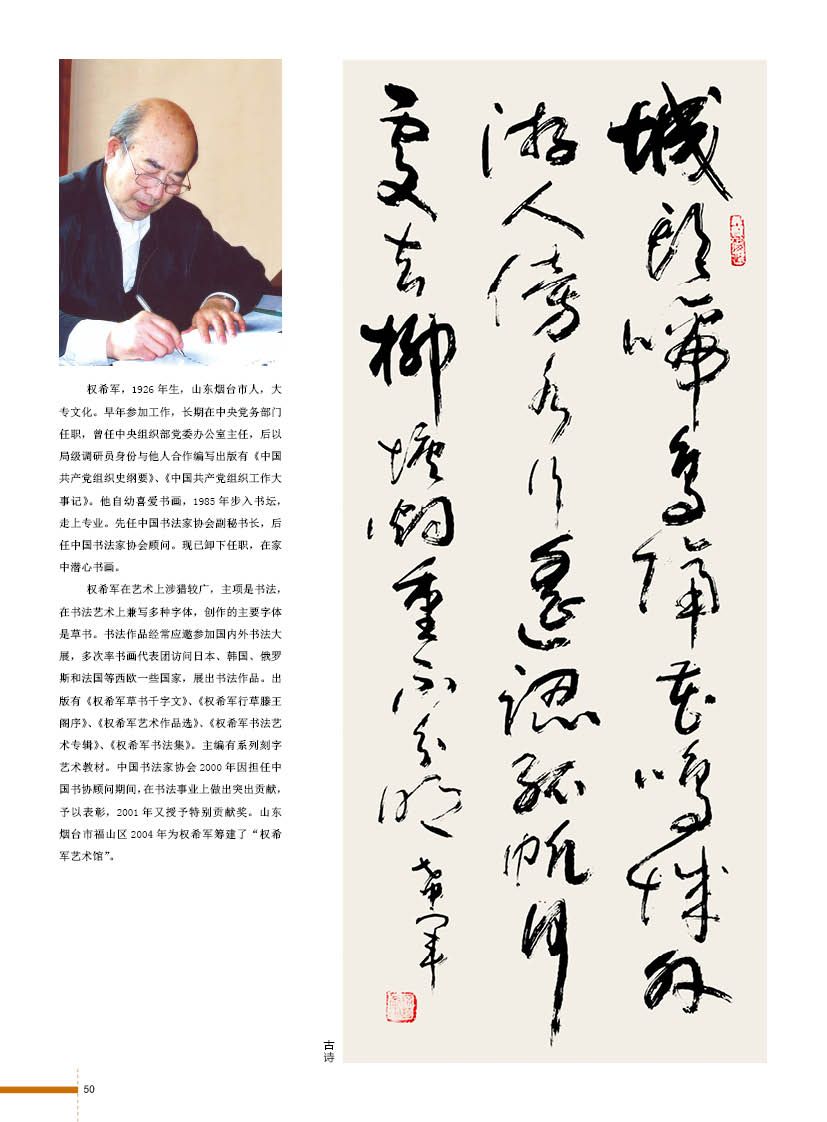 权希军，1926 年生，山东烟台市人，大
专文化。早年参加工作，长期在中央党务部门
任职，曾任中央组织部党委办公室主任，后以
局级调研员身份与他人合作编写出版有《中国
共产党组织史纲要》、《中国共产党组织工作大
事记》。他自幼喜爱书画，1985 年步入书坛，
走上专业。先任中国书法家协会副秘书长，后
任中国书法家协会顾问。现已卸下任职，在家
中潜心书画。
权希军在艺术上涉猎较广，主项是书法，
在书法艺术上兼写多种字体，创作的主要字体
是草书。书法作品经常应邀参加国内外书法大
展，多次率书画代表团访问日本、韩国、俄罗
斯和法国等西欧一些国家，展出书法作品。出
版有《权希军草书千字文》、《权希军行草滕王
阁序》、《权希军艺术作品选》、《权希军书法艺
术专辑》、《权希军书法集》。主编有系列刻字
艺术教材。中国书法家协会 2000 年因担任中
国书协顾问期间，在书法事业上做出突出贡献，
予以表彰，2001 年又授予特别贡献奖。山东
烟台市福山区 2004 年为权希军筹建了“权希
军艺术馆”。
城頭啼鳥隔花鳴城外
游人傍水行遙認孤帆何
處去柳塘烟重不分明 希軍
古诗
50